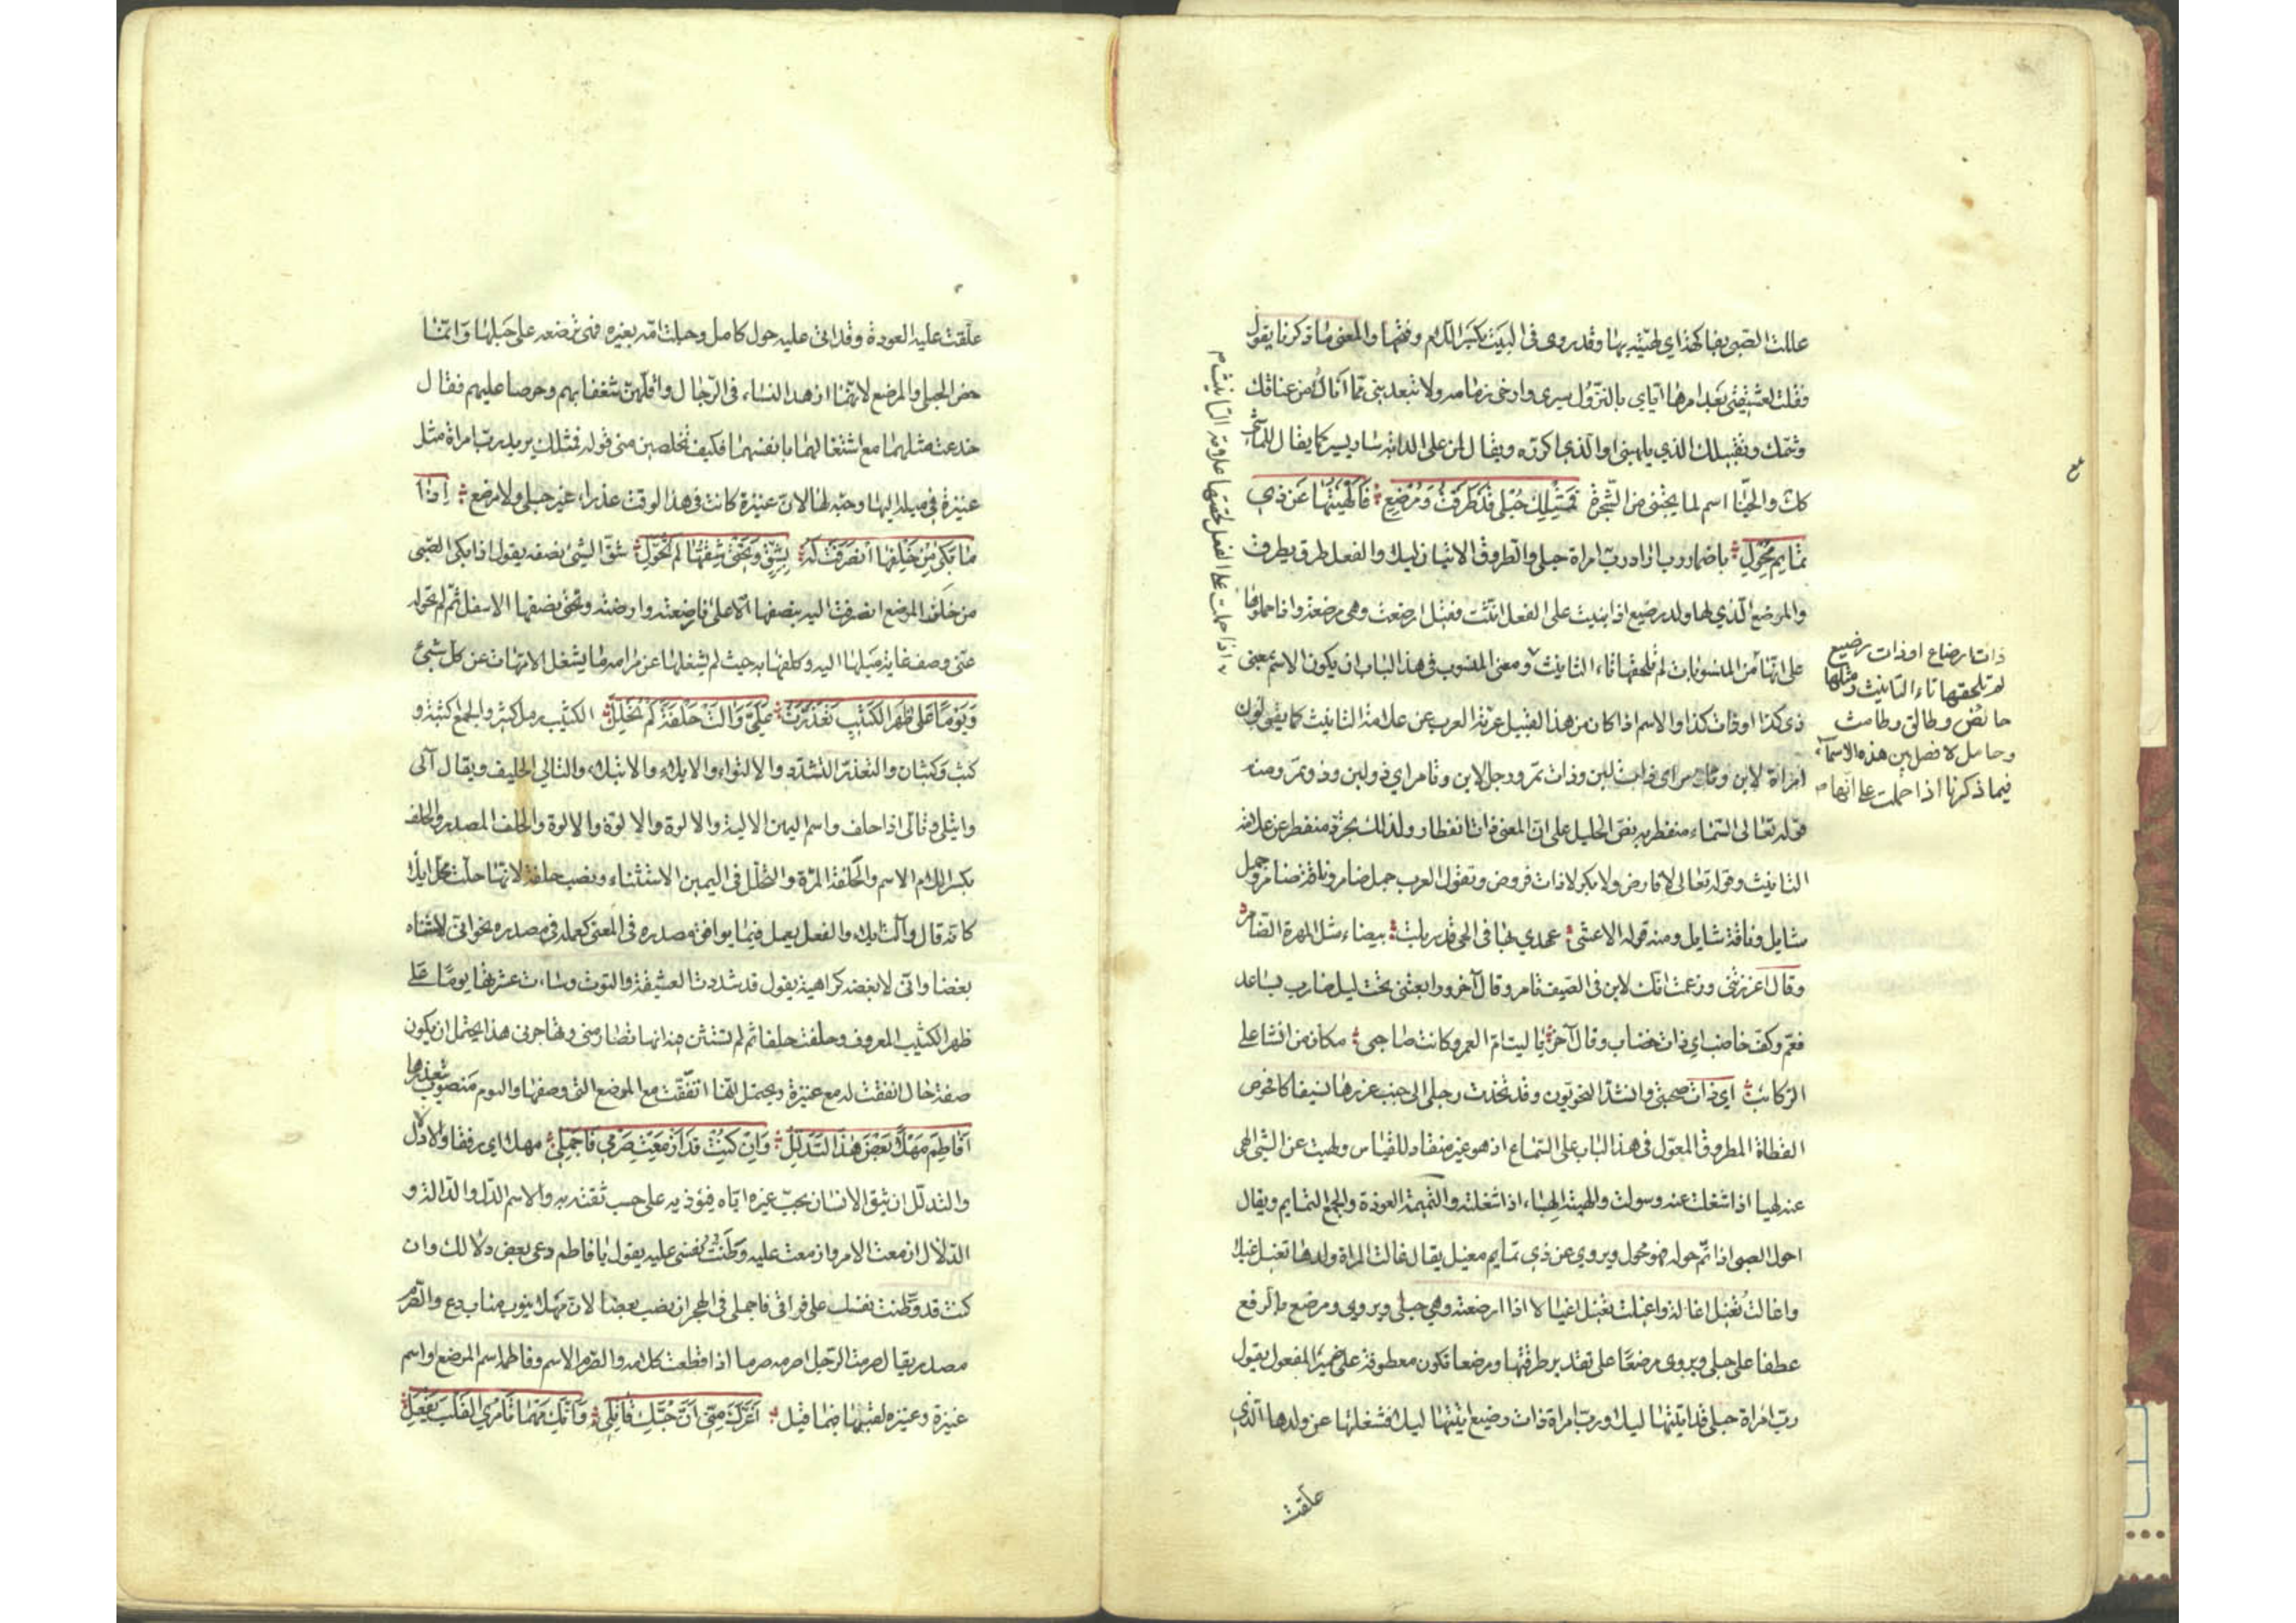 عللت الصبي بفاكهة اي لهيته بها وقد روى في البيت بكسر اللام وفتحها والمعنى ما ذكرنا يقول
فقلت لعشيقتي بعد امرها اياي بالنزول سيري وارخي زمامه ولا تبعديني مما انال من عناقك
وشمك وتقبيلك الذي يلهيني او الذي اكرره ويقال لمن على الدابة سار يسير كما يقال للماشي
كذلك والجنا اسم لما يجتنى من الشجرة فَمِثْلِكِ حُبْلَى قَدْ طَرَقْتُ وَمُرْضِعٍ فَأَلْهَيْتُهَا عَنْ ذِي
تَمَايِمَ مُحْوِلِ باضمار رب اراد رب امراة حبلى والطروق الاتيان ليلا والفعل طرق يطرق
والمرضع الذي لها ولد رضيع اذا بنيت على الفعل انثت فقيل ارضعت وهي مرضعة واذا حملوها
على انها من المنسوبات لم تلحقها تاء التانيث ومعنى المنسوب في هذا الباب ان يكون الاسم بمعنى
ذي كذا او ذات كذا والاسم اذا كان من هذا القبيل عرته العرب عن علامة التانيث كما يقولون
امراة لابن وتامر اي ذات لبن وذات تمر ورجل لابن وتامر اي ذو لبن وذو تمر ومنه
قوله تعالى السماء منفطر به نص الخليل على ان المعنى ذات انفطار ولذلك تجرد منفطر عن علامة
التانيث وقوله تعالى لا فارض ولا بكر لا ذات فروض وتقول العرب جمل ضامر وناقة ضامر وجمل
شايل وناقة شايل ومنه قوله الاعشى عهدي بها في الحي قد سربلت بيضاء مثل المهرة الضامر
وقال اغررتني وزعمت انك لابن في الصيف تامر وقال آخر
فعم وكف خاضب اي ذات خضاب وقال آخر يا ليت ام العمر وكانت صاحبي مكان من انشا على
الركائب اي ذات صحبتي وانشد النحويون وقد تخذت رجلي الى جنب غرزها نسيفا كافحوص
القطاة المطرق المعول في هذا الباب على السماع اذ هو غير منقاد للقياس ولهيت عن الشيء الهى
عنه لهيا اذا شغلت عنه وسلوت والهيته الهاء اذا شغلته والتميمة العوذة والجمع التمايم ويقال
احول الصبي اذا تم حوله فهو محول ويروى عن ذي تمايم مغيل يقال غالت المراة ولدها تغيل غيلا
واغالت تغيل اغالة واغيلت تغيل اغيالا اذا ارضعته وهي حبلى ويروى ومرضع بالرفع
عطفا على حبلى ويروى مرضعا على تقدير طرقتها ومرضعا تكون معطوفة على ضمير المفعول يقول
رب امراة حبلى قد اتيتها ليلا ورب امراة ذات رضيع اتيتها ليلا فشغلتها عن ولدها الذي
علقت
ذات ارضاع او ذات رضيع
لم تلحقها تاء التانيث ومثلها
حائض وطالق وطامث
وحامل لا فصل بين هذه الاسماء
فيما ذكرنا اذا حملت على انها
اذا حملت على الفعل لحقتها علامة التانيث
علقت عليه العوذة وقد اتى عليه حول كامل وحبلت امه بغيره فهي ترضعه على حبلها وانما
خص الحبلى والمرضع لانهما ازهد النساء في الرجال واقلهن شغفا بهم وحرصا عليهم فقال
خدعت مثلهما مع اشتغالهما بانفسهما فكيف تخلصين مني قوله فمثلك يريد رب امراة مثل
عنيزة في ميله اليها وحبه لها لان عنيزة كانت في هذا الوقت عذراء غير حبلى ولا مرضع إِذَا
مَا بَكَى مِنْ خَلْفِهَا انْصَرَفَتْ لَهُ بِشِقٍّ وَتَحْتِي شِقُّهَا لَمْ تُحَوَّلِ شق الشيء نصفه يقول اذا بكى الصبي
من خلف المرضع انصرفت اليه بنصفها الاعلى فارضعته وارضته وتحتي نصفها الاسفل ثم لم تحوله
عني وصف غاية ميلها اليه وكلفها به حيث لم يشغلها عن مرامه ما يشغل الامهات عن كل شيء
وَيَوْمًا عَلَى ظَهْرِ الْكَثِيبِ تَعَذَّرَتْ عَلَيَّ وَآلَتْ حَلْفَةً لَمْ تُحَلَّلِ الكثيب رمل كثير والجمع كثبة و
كثب وكثبان والتعذر التشدد والالتواء والايلاء والايتلاء والتالي الحليف ويقال آلى
وايتلى وتالى اذا حلف واسم اليمين الالية والالوة والالوة والالوة والحلف المصدر والحلف
بكسر اللام الاسم والحلفة المرة والتحلل في اليمين الاستثناء ونصب حلفة لانها حلت محل ايلاء
كانه قال وآلت ايلاء والفعل يعمل فيما يوافق مصدره في المعنى كعمله في مصدره نحو اني لاشناه
بغضا واني لابغضه كراهية يقول قد شددت العشيقة والتوت وساءت عشرتها يوما على
ظهر الكثيب المعروف وحلفت حلفا ثم لم تستثن فيه انها تصارمني وتهاجرني هذا يحتمل ان يكون
صفة حال اتفقت له مع عنيزة ويحتمل انها اتفقت مع الموضع التي وصفها واليوم منصوب بتعذرها
أَفَاطِمَ مَهْلًا بَعْضَ هٰذَا التَّدَلُّلِ وَإِنْ كُنْتِ قَدْ أَزْمَعْتِ صَرْمِي فَأَجْمِلِي مهلا اي رفقا والادلال
والتدلل ان يثق الانسان بحب غيره اياه فيؤذيه على حسب ثقته به والاسم الدل والدالة و
الدلال ازمعت الامر وازمعت عليه وطنت نفسي عليه يقول يا فاطم دعي بعض دلالك وان
كنت قد وطنت نفسك على فراقي فاجملي في الهجران نصب بعضا لان مهلا ينوب مناب دع والصرم
مصدر يقال صرمت الرجل اصرمه صرما اذا قطعت كلامه والصرم الاسم وفاطمة اسم المرضع او اسم
عنيزة وعنيزة لقبها فيما قيل أَغَرَّكِ مِنِّي أَنَّ حُبَّكِ قَاتِلِي وَأَنَّكِ مَهْمَا تَأْمُرِي الْقَلْبَ يَفْعَلِ